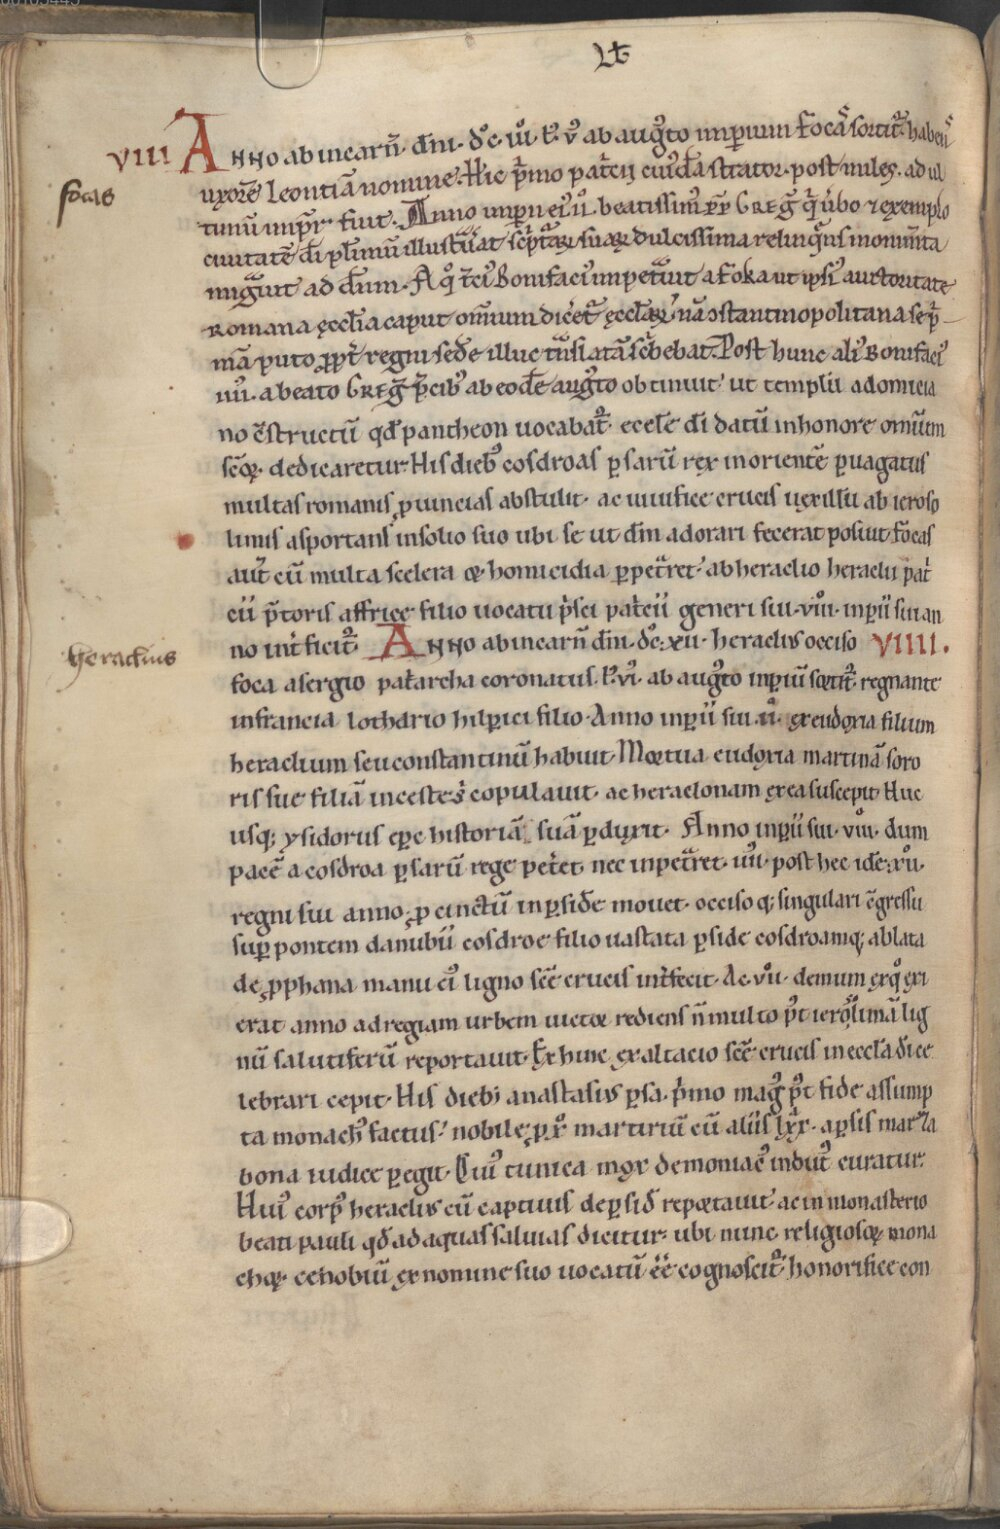 Lt
VIII ANNO ab incarñ. dñi. dc. iiii. l. v ab augto imperium focas sortitur. habens
focas
uxorē leontiā nomine. Hic p̃mo patricii cuiusdā strator. post miles. ad ul
timū impr̃ fuit. Anno imperii eius ii. beatissimus pp GREG̃ qi verbo ⁊ exemplo
civitatē di plimū illustrãuat scriptãrꝝ suarꝝ dulcissima relinquens monimta
migãuit ad dñm. A quo t̃cius Bonifacius impetãuit a foka ut ipsius auctoritate
romana ęcclia caput omnium diceret ęccliarꝝ nā ↄstantinopolitana se p̃
mā puto ppt̃ regni sedē illuc tnslatā sc̃bebat. Post hunc alius Bonifacius
iiii. a beato GREG̃ p̃cibus ab eodē augto obtinuit ut templū a domicia
no c̃structū qd pantheon uocabatur. eccle di datū in honore omnium
sc̃oꝝ dedicaretur. His diebus cosdroas psarū rex in orientē puagatus
multas romanis puincias abstulit. ac uiuifice crucis uexillū ab ieroso
limis asportans in solio suo ubi se ut dm adorari fecerat posuit. focas
aut̃ cū multa scelera ⁊ homicidia ppet̃ret. ab heraclio heraclii pat̃
cii p̃toris affrice filio uocatu p̃sci pat̃cii generi sui. viii. inpii sui an
no int̃ficitur. ANNO ab incarñ dñi. dc. xii. heraclius occiso VIIII.
heraclius
foca a sergio pat̃archa coronatus. l. vi. ab augto inpiū sortitur. regnante
in francia lothario hilpici filio. Anno inpii sui. ii. ex eudoxia filium
heraclium seu constantinū habuit. Mortua eudoxia martinā soro
ris sue filiā inceste s̃ copulauit. ac heraclonam ex ea suscepit. Huc
usq; ysidorus ep̃c historiā suā pduxit. Anno inpii sui. viii. dum
pacē a cosdroa psarū rege pet̃et. nec inpetãret. iiii. post hec id ē. xii.
regni sui anno, pcinctū in psidē mouet. occiso q; singulari c̃gressu
sup pontem danubii cosdroe filio uastata pside cosdroamq; ablata
de pphana manu eius ligno sc̃e crucis int̃fecit. Ac. vii. demum ex quo exi
erat anno ad regiam urbem uictor rediens ñ multo pt ierosolimā lig
nū salutiferū reportauit. Ex hinc exaltacio sc̃e crucis in eccla di ce
lebrari cepit. His diebus anastasius psa. p̃mo magus pt fide assump
ta monachus factus. nobile p xp̃o martiriū cū aliis lxx. a psis marza
bona iudice pegit. Cuius tunica mox demoniacus indutus curatur.
Huius corpus heraclius cū captiuis de psid̃ reportauit ac in monasterio
beati pauli qd ad aquas saluias dicitur. ubi nunc religiosoꝝ mona
choꝝ cenobiū ex nomine suo uocatū eē cognoscitur. honorifice con